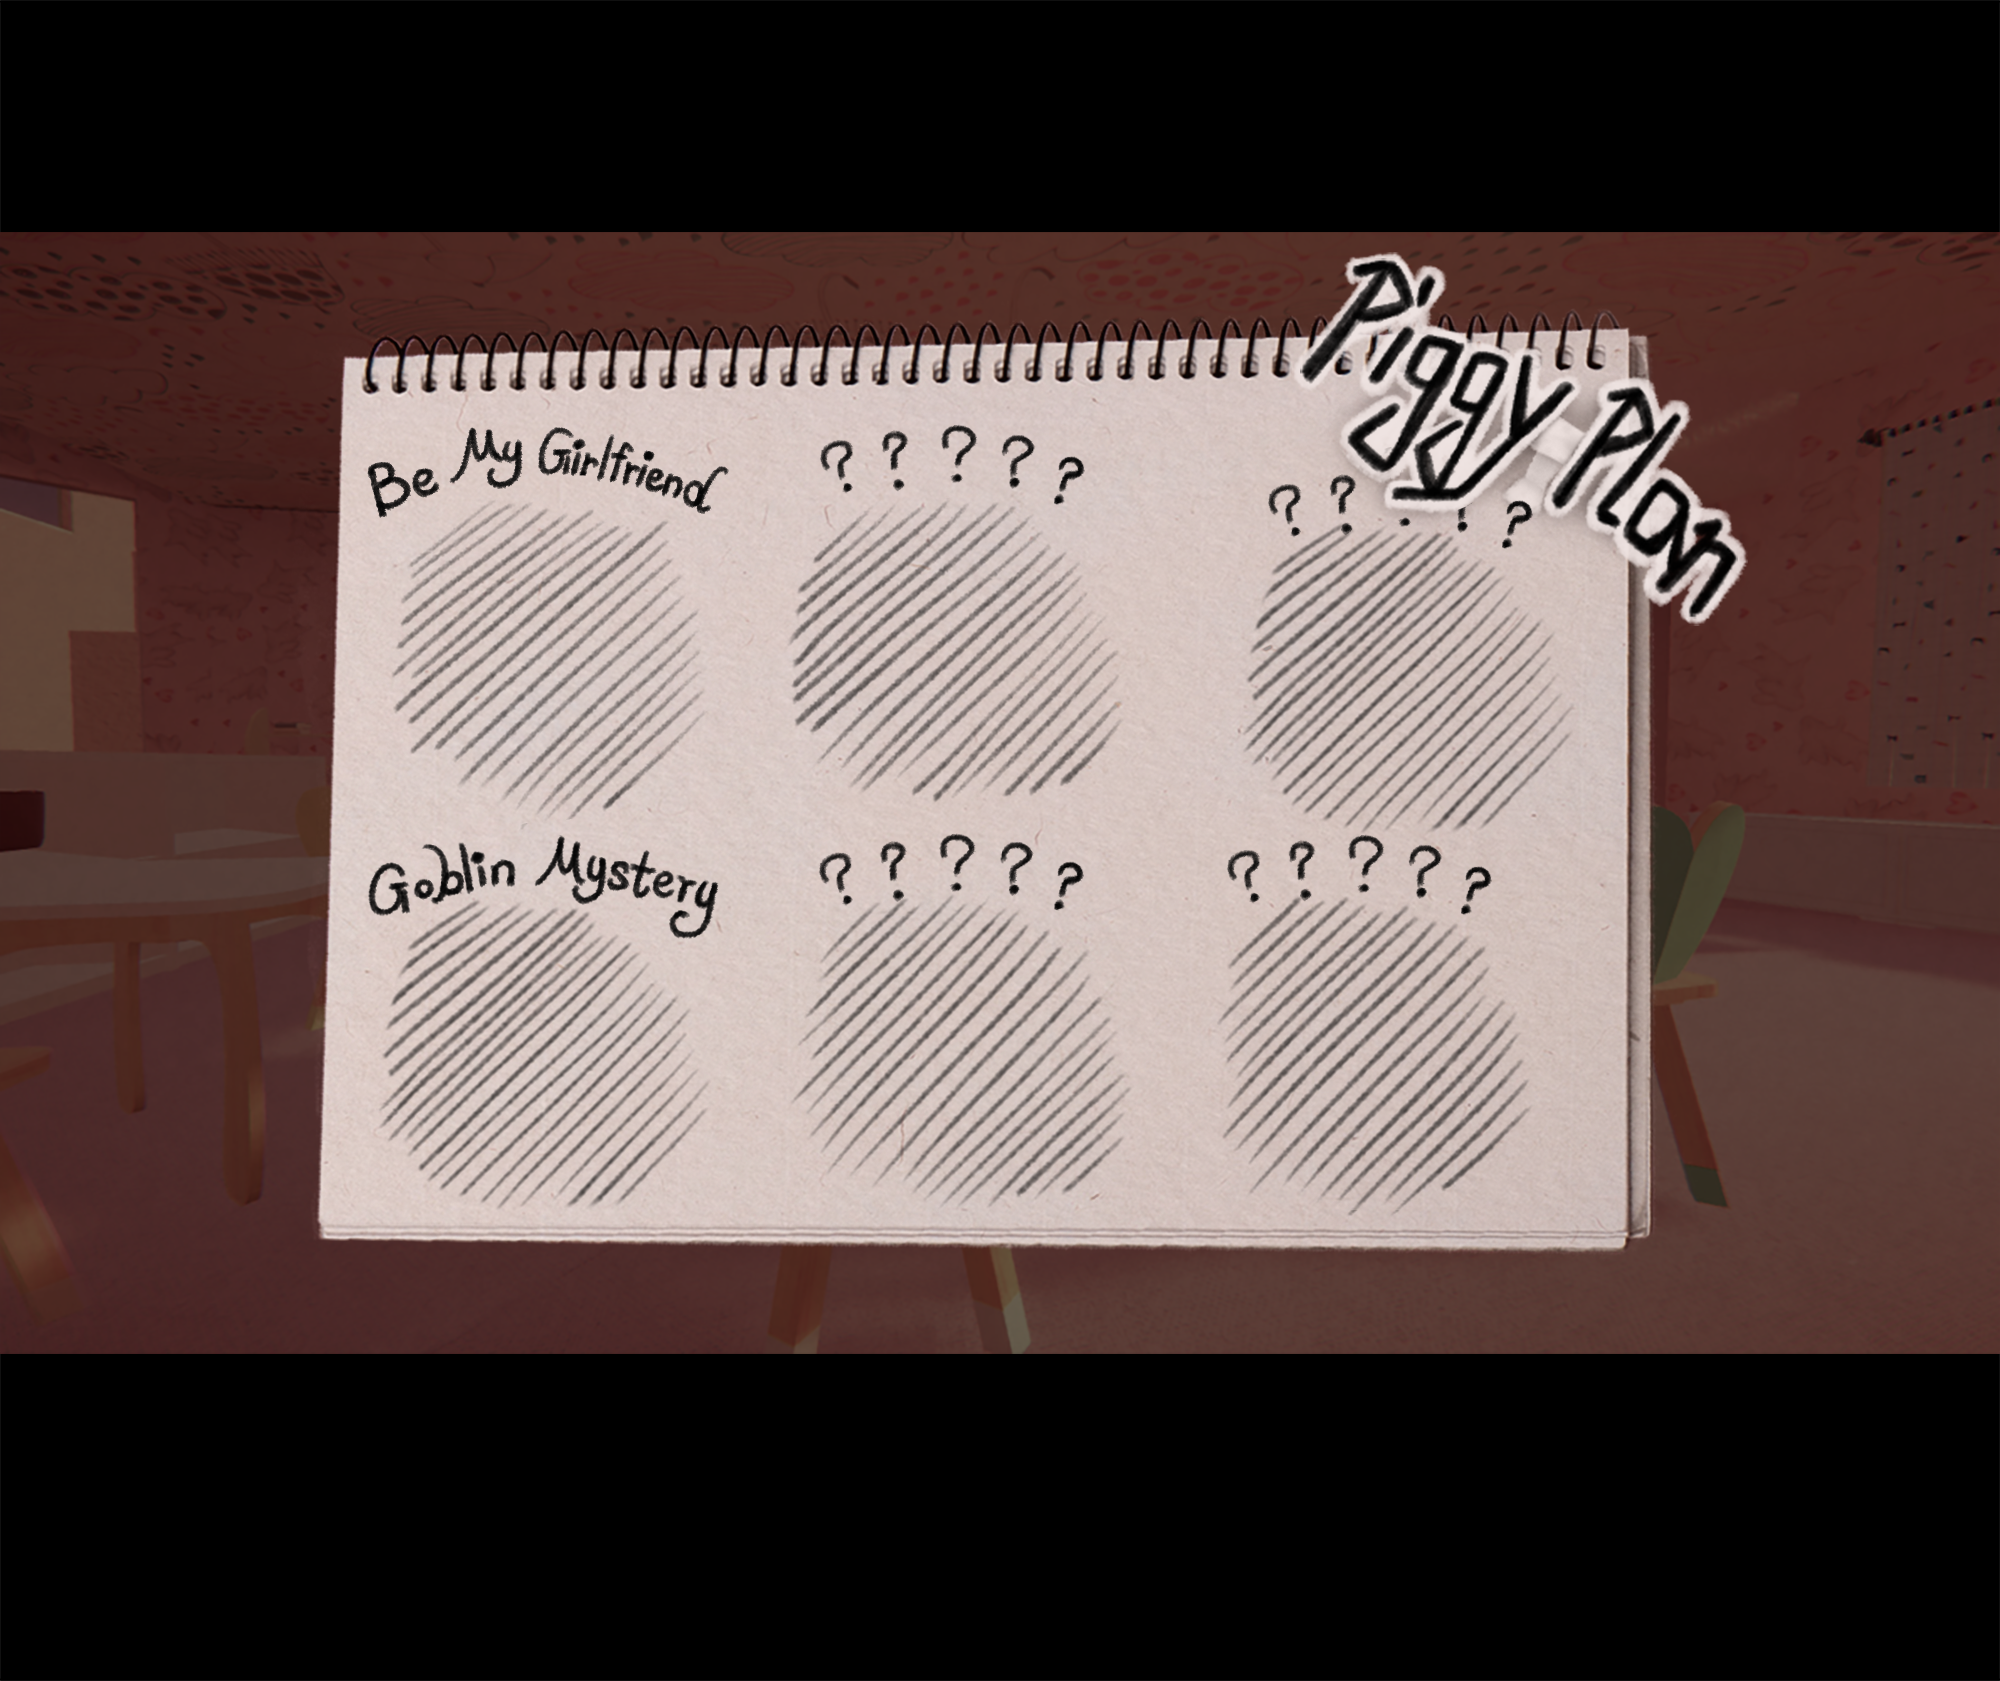 Piggy Plan
Be My Girlfriend
? ? ? ? ?
? ? ? ? ?
Goblin Mystery
? ? ? ? ?
? ? ? ? ?